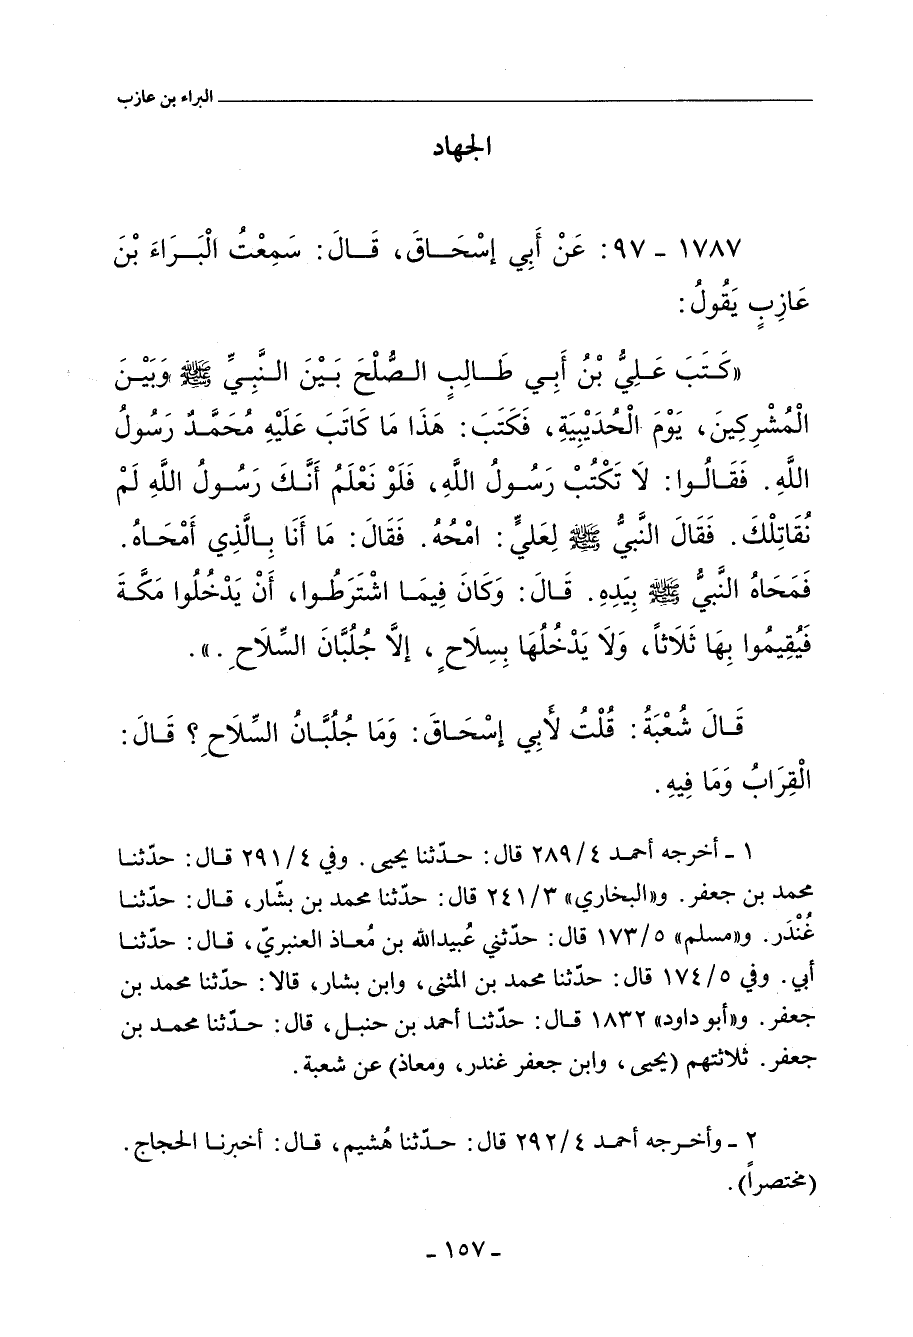 البراء بن عازب
الجهاد
١٧٨٧ - ٩٧: عَنْ أَبِي إسْحَـاقَ، قَـالَ: سَمِعْتُ الْبَـرَاءَ بْنَ
عَازِبٍ يَقُولُ:
«كَـتَبَ عَـلِيُّ بْنُ أَبِـي طَـالِبٍ الـصُّلْحَ بَـيْنَ الـنَّبِـيِّ ﷺ وَبَيْـنَ
الْمُشْرِكِينَ، يَوْمَ الْحُدَيْبِيَةِ، فَكَتَبَ: هَذَا مَا كَاتَبَ عَلَيْهِ مُحَمَّدٌ رَسُولُ
اللَّهِ. فَقَـالُـوا: لَا تَكْتُبْ رَسُـولُ اللَّهِ، فَلَوْ نَعْلَمُ أَنَّـكَ رَسُـولُ اللَّهِ لَمْ
نُقَاتِلْكَ. فَقَالَ النَّبِيُّ ﷺ لِعَليٍّ: امْحُهُ. فَقَالَ: مَا أَنَا بِـالَّذِي أَمْحَـاهُ.
فَمَحَاهُ النَّبِيُّ ﷺ بِيَدِهِ. قَـالَ: وَكَانَ فِيمَـا اشْتَرَطُـوا، أَنْ يَدْخُلُوا مَكَّةَ
فَيُقِيمُوا بِهَا ثَلَاثاً، وَلَا يَدْخُلُهَا بِسِلَاحٍ، إلَّا جُلُبَّانَ السِّلَاحِ.».
قَـالَ شُعْبَةُ: قُلْتُ لأَبِي إسْحَـاقَ: وَمَا جُلُبَّـانُ السِّلَاحِ؟ قَـالَ:
الْقِرَابُ وَمَا فِيهِ.
١ - أخرجه أحمـد ٢٨٩/٤ قال: حـدّثنا يحيى. وفي ٢٩١/٤ قـال: حدّثنـا
محمد بن جعفر. و«البخاري» ٢٤١/٣ قال: حدّثنا محمد بن بشّار، قـال: حدّثنـا
غُنْدَر. و«مسلم» ١٧٣/٥ قال: حدّثني عُبيدالله بن مُعـاذ العنبريّ، قـال: حدّثنـا
أبي. وفي ١٧٤/٥ قال: حدّثنا محمد بن المثنى، وابن بشار، قالا: حدّثنا محمد بن
جعفر. و«أبو داود» ١٨٣٢ قـال: حدّثنـا أحمد بن حنبـل، قال: حـدّثنا محمـد بن
جعفر. ثلاثتهم (يحيى، وابن جعفر غندر، ومعاذ) عن شعبة.
٢ - وأخـرجه أحمـد ٢٩٢/٤ قال: حـدّثنا هُشيم، قـال: أخبرنـا الحجاج.
(مختصراً).
- ١٥٧ -